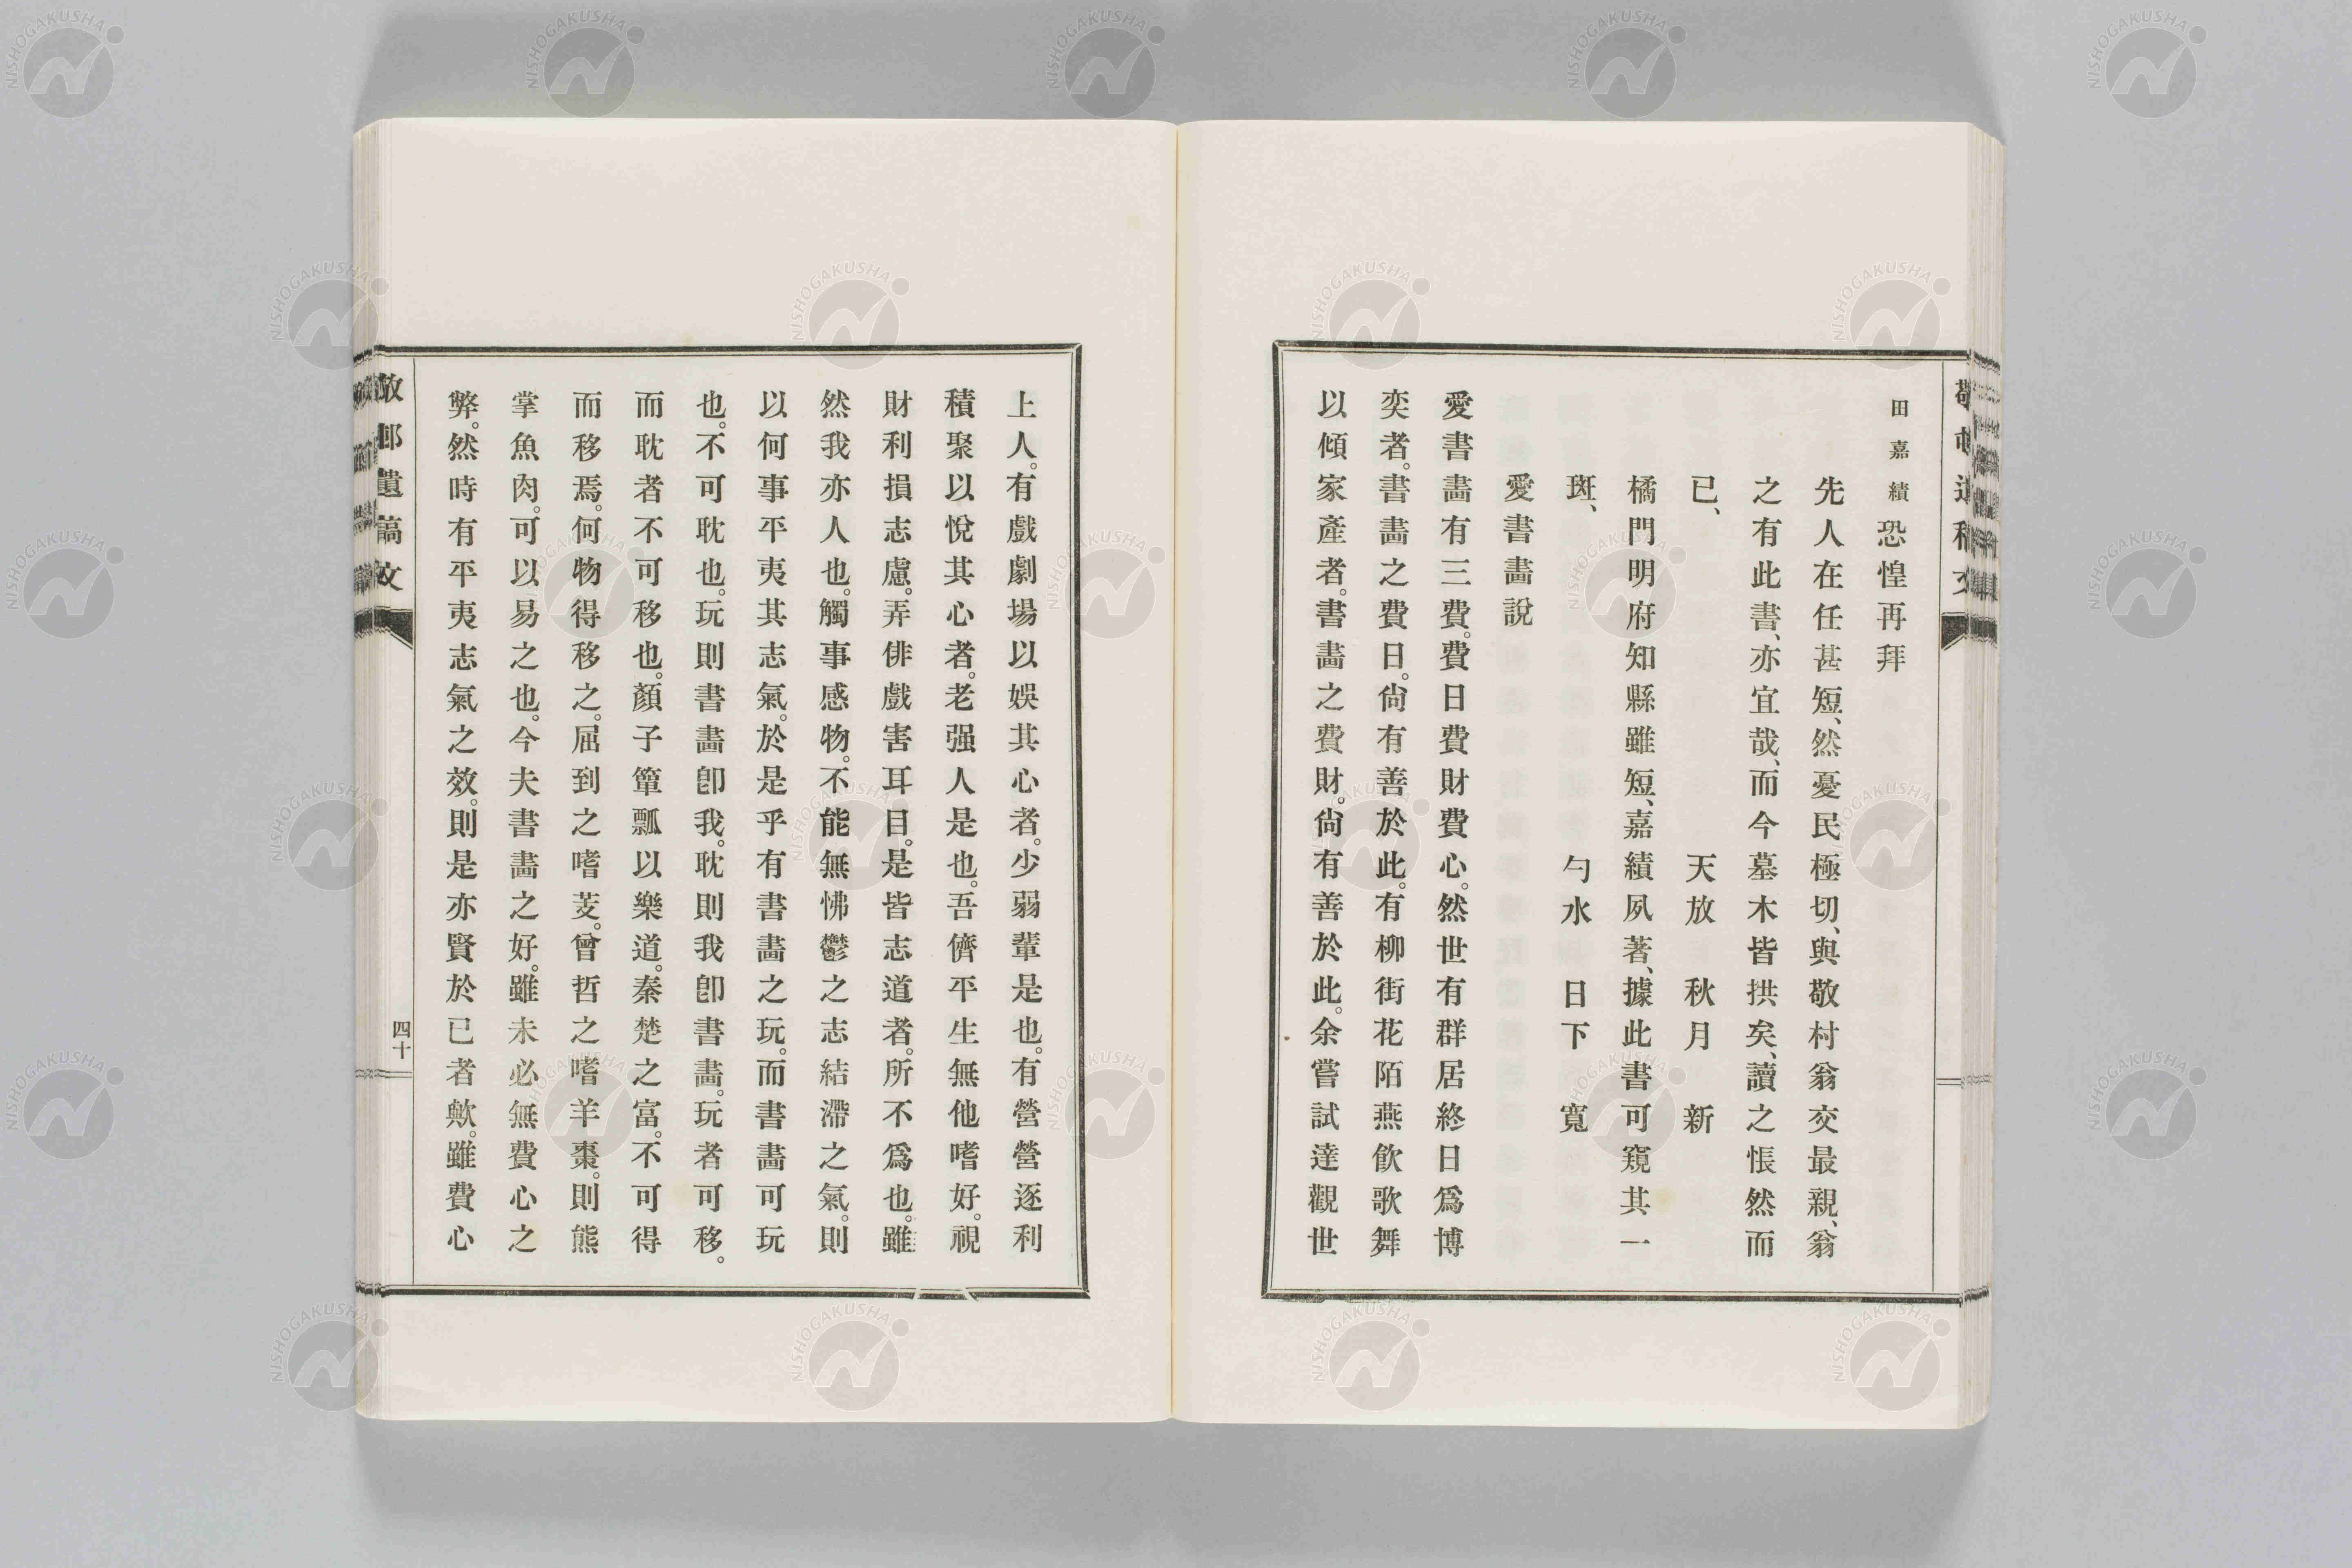 田嘉績恐惶再拜
先人在任甚短、然憂民極切、與敬村翁交最親、翁
之有此書、亦宜哉、而今墓木皆拱矣、讀之悵然而
已、　天放　秋月　新
橘門明府知縣雖短、嘉績夙著、據此書可窺其一
斑、　勺水　日下　寬
愛書畫說
愛書畫有三費。費日費財費心。然世有群居終日爲博
奕者。書畫之費日。尙有善於此。有柳街花陌燕飮歌舞
以傾家產者。書畫之費財。尙有善於此。余嘗試達觀世
上人。有戲劇場以娛其心者。少弱輩是也。有營營逐利
積聚以悅其心者。老强人是也。吾儕平生無他嗜好。視
財利損志慮。弄俳戲害耳目。是皆志道者。所不爲也。雖
然我亦人也。觸事感物。不能無怫鬱之志結滯之氣。則
以何事平夷其志氣。於是乎有書畫之玩。而書畫可玩
也。不可耽也。玩則書畫卽我。耽則我卽書畫。玩者可移。
而耽者不可移也。顏子簞瓢以樂道。秦楚之富。不可得
而移焉。何物得移之。屈到之嗜芰。曾哲之嗜羊棗。則熊
掌魚肉。可以易之也。今夫書畫之好。雖未必無費心之
弊。然時有平夷志氣之效。則是亦賢於已者歟。雖費心
敬邨遺稿文
四十